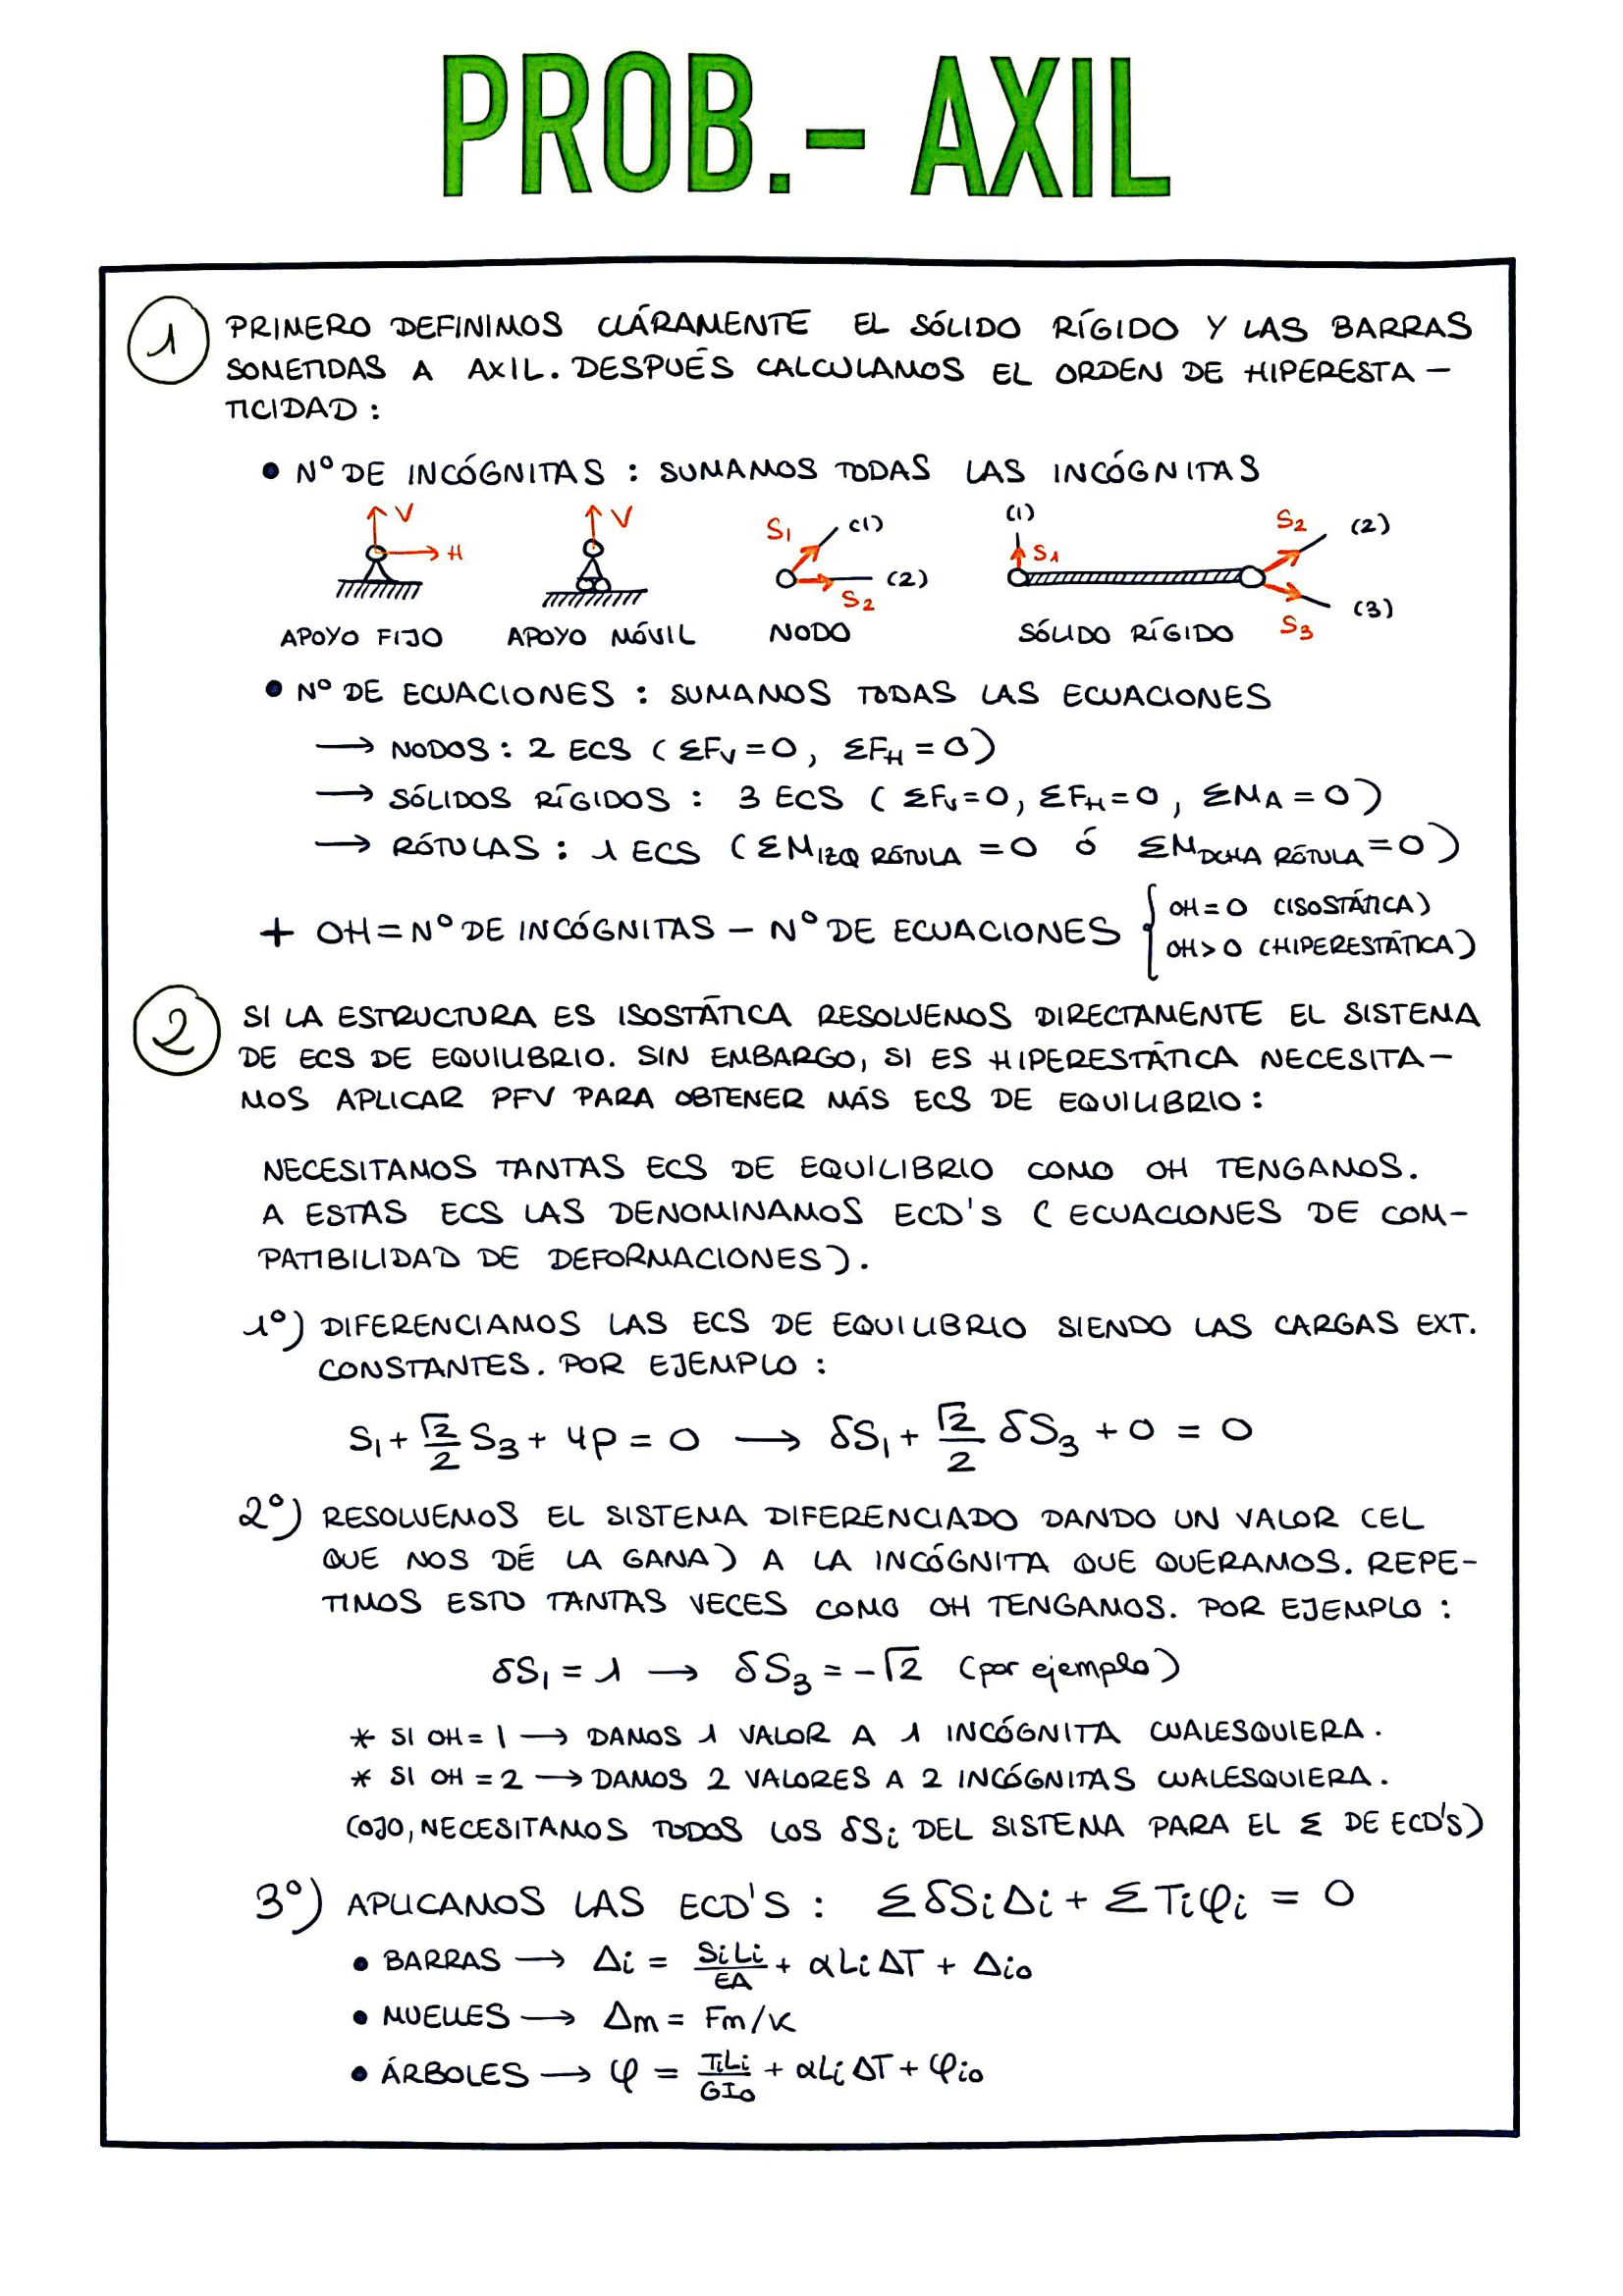 PROB.- AXIL
1 PRIMERO DEFINIMOS CLÁRAMENTE EL SÓLIDO RÍGIDO Y LAS BARRAS
SOMETIDAS A AXIL. DESPUÉS CALCULAMOS EL ORDEN DE HIPERESTA-
TICIDAD:
• Nº DE INCÓGNITAS : SUMAMOS TODAS LAS INCÓGNITAS
V H
APOYO FIJO
V
APOYO MÓVIL
S1 (1) (2) S2
NODO
(1) S1 S2 (2) (3) S3
SÓLIDO RÍGIDO
• Nº DE ECUACIONES : SUMAMOS TODAS LAS ECUACIONES
→ NODOS : 2 ECS (ΣFV = 0, ΣFH = 0)
→ SÓLIDOS RÍGIDOS : 3 ECS (ΣFV = 0, ΣFH = 0, ΣMA = 0)
→ RÓTULAS : 1 ECS (ΣMIZQ RÓTULA = 0 Ó ΣMDCHA RÓTULA = 0)
+ OH = Nº DE INCÓGNITAS − Nº DE ECUACIONES { OH = 0 (ISOSTÁTICA)
OH > 0 (HIPERESTÁTICA)
2 SI LA ESTRUCTURA ES ISOSTÁTICA RESOLVEMOS DIRECTAMENTE EL SISTEMA
DE ECS DE EQUILIBRIO. SIN EMBARGO, SI ES HIPERESTÁTICA NECESITA-
MOS APLICAR PFV PARA OBTENER MÁS ECS DE EQUILIBRIO:
NECESITAMOS TANTAS ECS DE EQUILIBRIO COMO OH TENGAMOS.
A ESTAS ECS LAS DENOMINAMOS ECD'S (ECUACIONES DE COM-
PATIBILIDAD DE DEFORMACIONES).
1º) DIFERENCIAMOS LAS ECS DE EQUILIBRIO SIENDO LAS CARGAS EXT.
CONSTANTES. POR EJEMPLO :
S1 + √2/2 S3 + 4P = 0 → δS1 + √2/2 δS3 + 0 = 0
2º) RESOLVEMOS EL SISTEMA DIFERENCIADO DANDO UN VALOR (EL
QUE NOS DÉ LA GANA) A LA INCÓGNITA QUE QUERAMOS. REPE-
TIMOS ESTO TANTAS VECES COMO OH TENGAMOS. POR EJEMPLO :
δS1 = 1 → δS3 = −√2 (por ejemplo)
* SI OH = 1 → DAMOS 1 VALOR A 1 INCÓGNITA CUALESQUIERA.
* SI OH = 2 → DAMOS 2 VALORES A 2 INCÓGNITAS CUALESQUIERA.
(OJO, NECESITAMOS TODOS LOS δSi DEL SISTEMA PARA EL Σ DE ECD'S)
3º) APLICAMOS LAS ECD'S : ΣδSiΔi + ΣTiφi = 0
• BARRAS → Δi = SiLi/EA + αLiΔT + Δio
• MUELLES → Δm = Fm/K
• ÁRBOLES → φ = TiLi/GIo + αLiΔT + φio